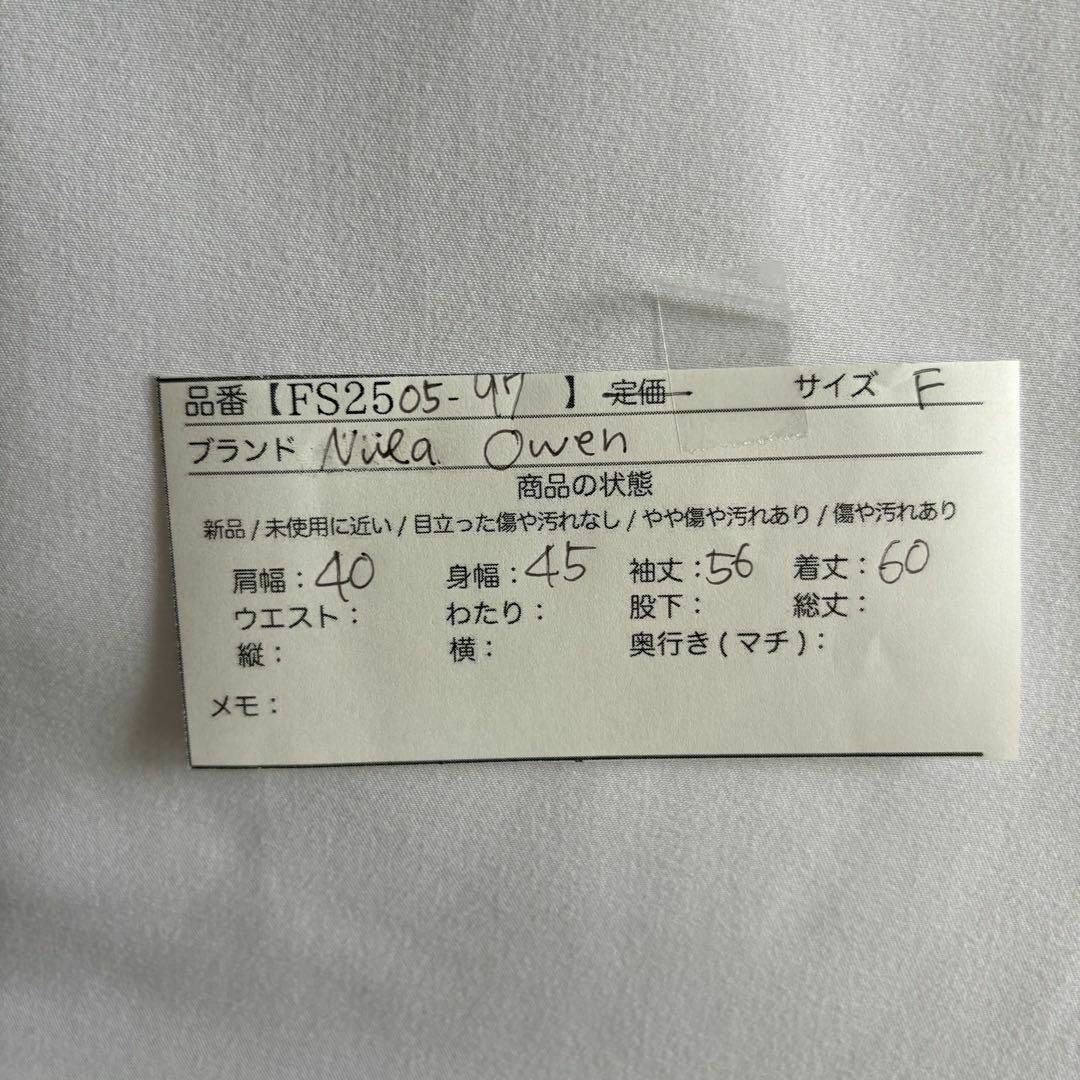 品番【FS2505-97 】 定価 サイズ F
ブランド Nula Owen
商品の状態
新品 / 未使用に近い / 目立った傷や汚れなし / やや傷や汚れあり / 傷や汚れあり
肩幅：40 身幅：45 袖丈：56 着丈：60
ウエスト： わたり： 股下： 総丈：
縦： 横： 奥行き(マチ)：
メモ：